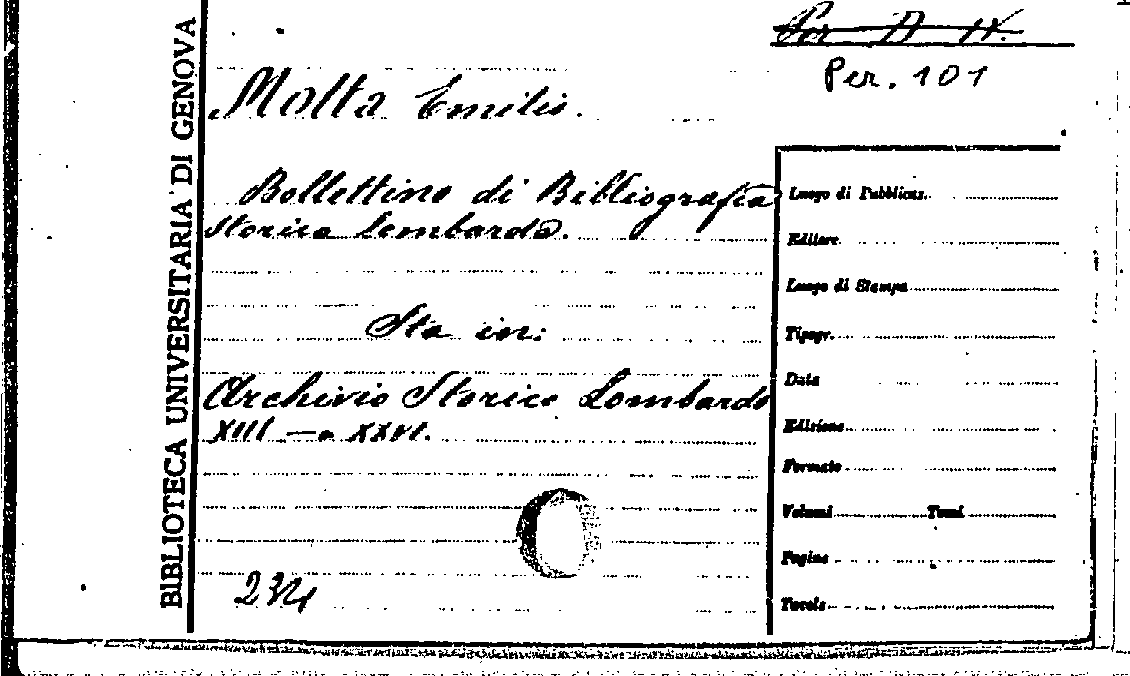 Per. 101
Motta Emilio.
Bollettino di Bibliografia
Storica Lombarda.
Sta in:
Archivio Storico Lombardo
XIII — a XXVI.
BIBLIOTECA UNIVERSITARIA DI GENOVA
Luogo di Pubblicaz.
Editore
Luogo di Stampa
Tipogr.
Data
Edizione
Formato
Volumi Tomi
Pagine
Tavole